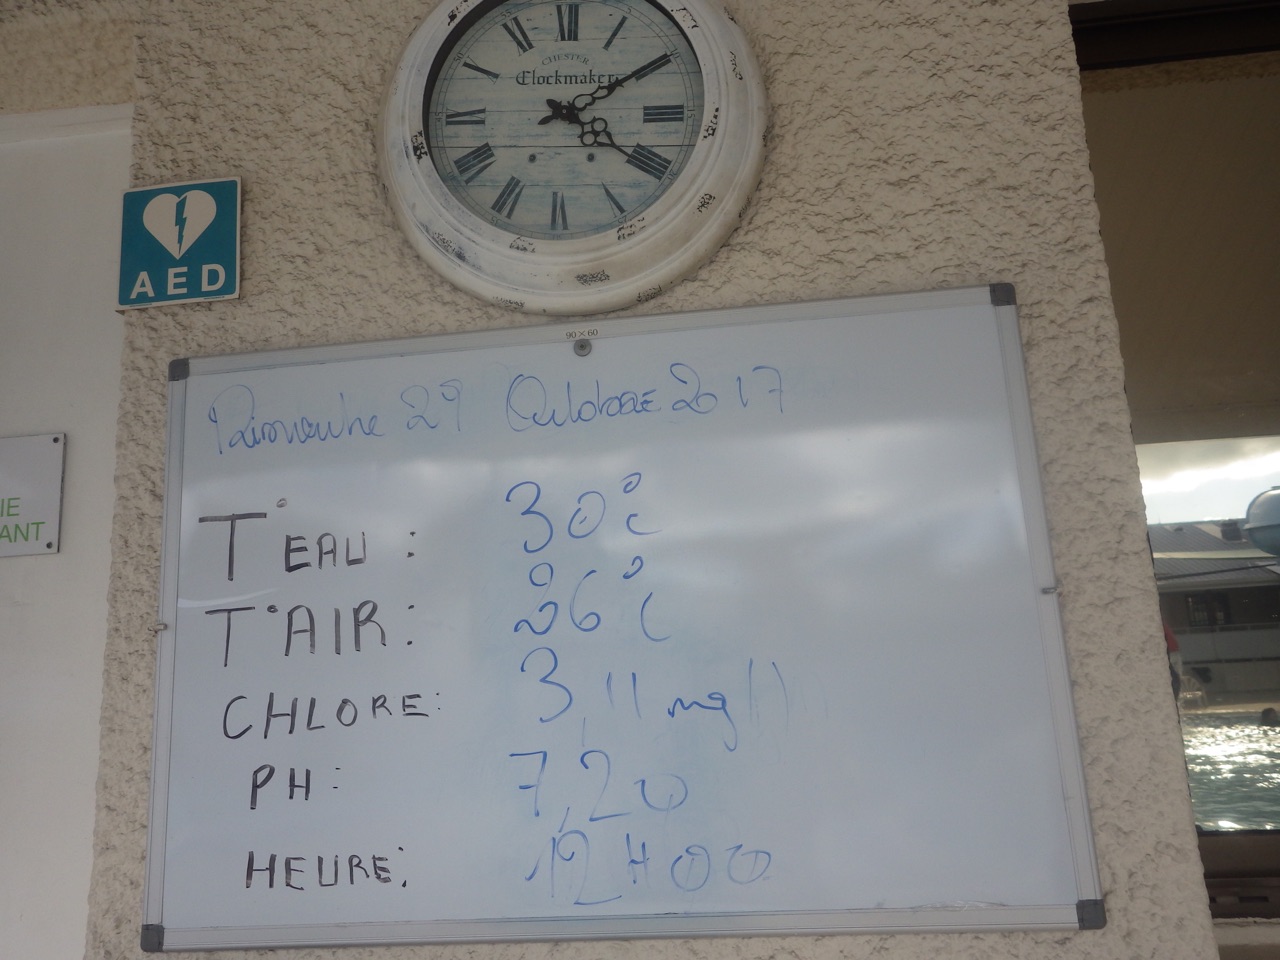 CHESTER
Clockmaker
AED
90×60
Dimanche 29 Octobre 2017
T° EAU : 30°C
T° AIR : 26°C
CHLORE : 3,11 mg/l
PH : 7,20
HEURE : 12H00
IE
ANT